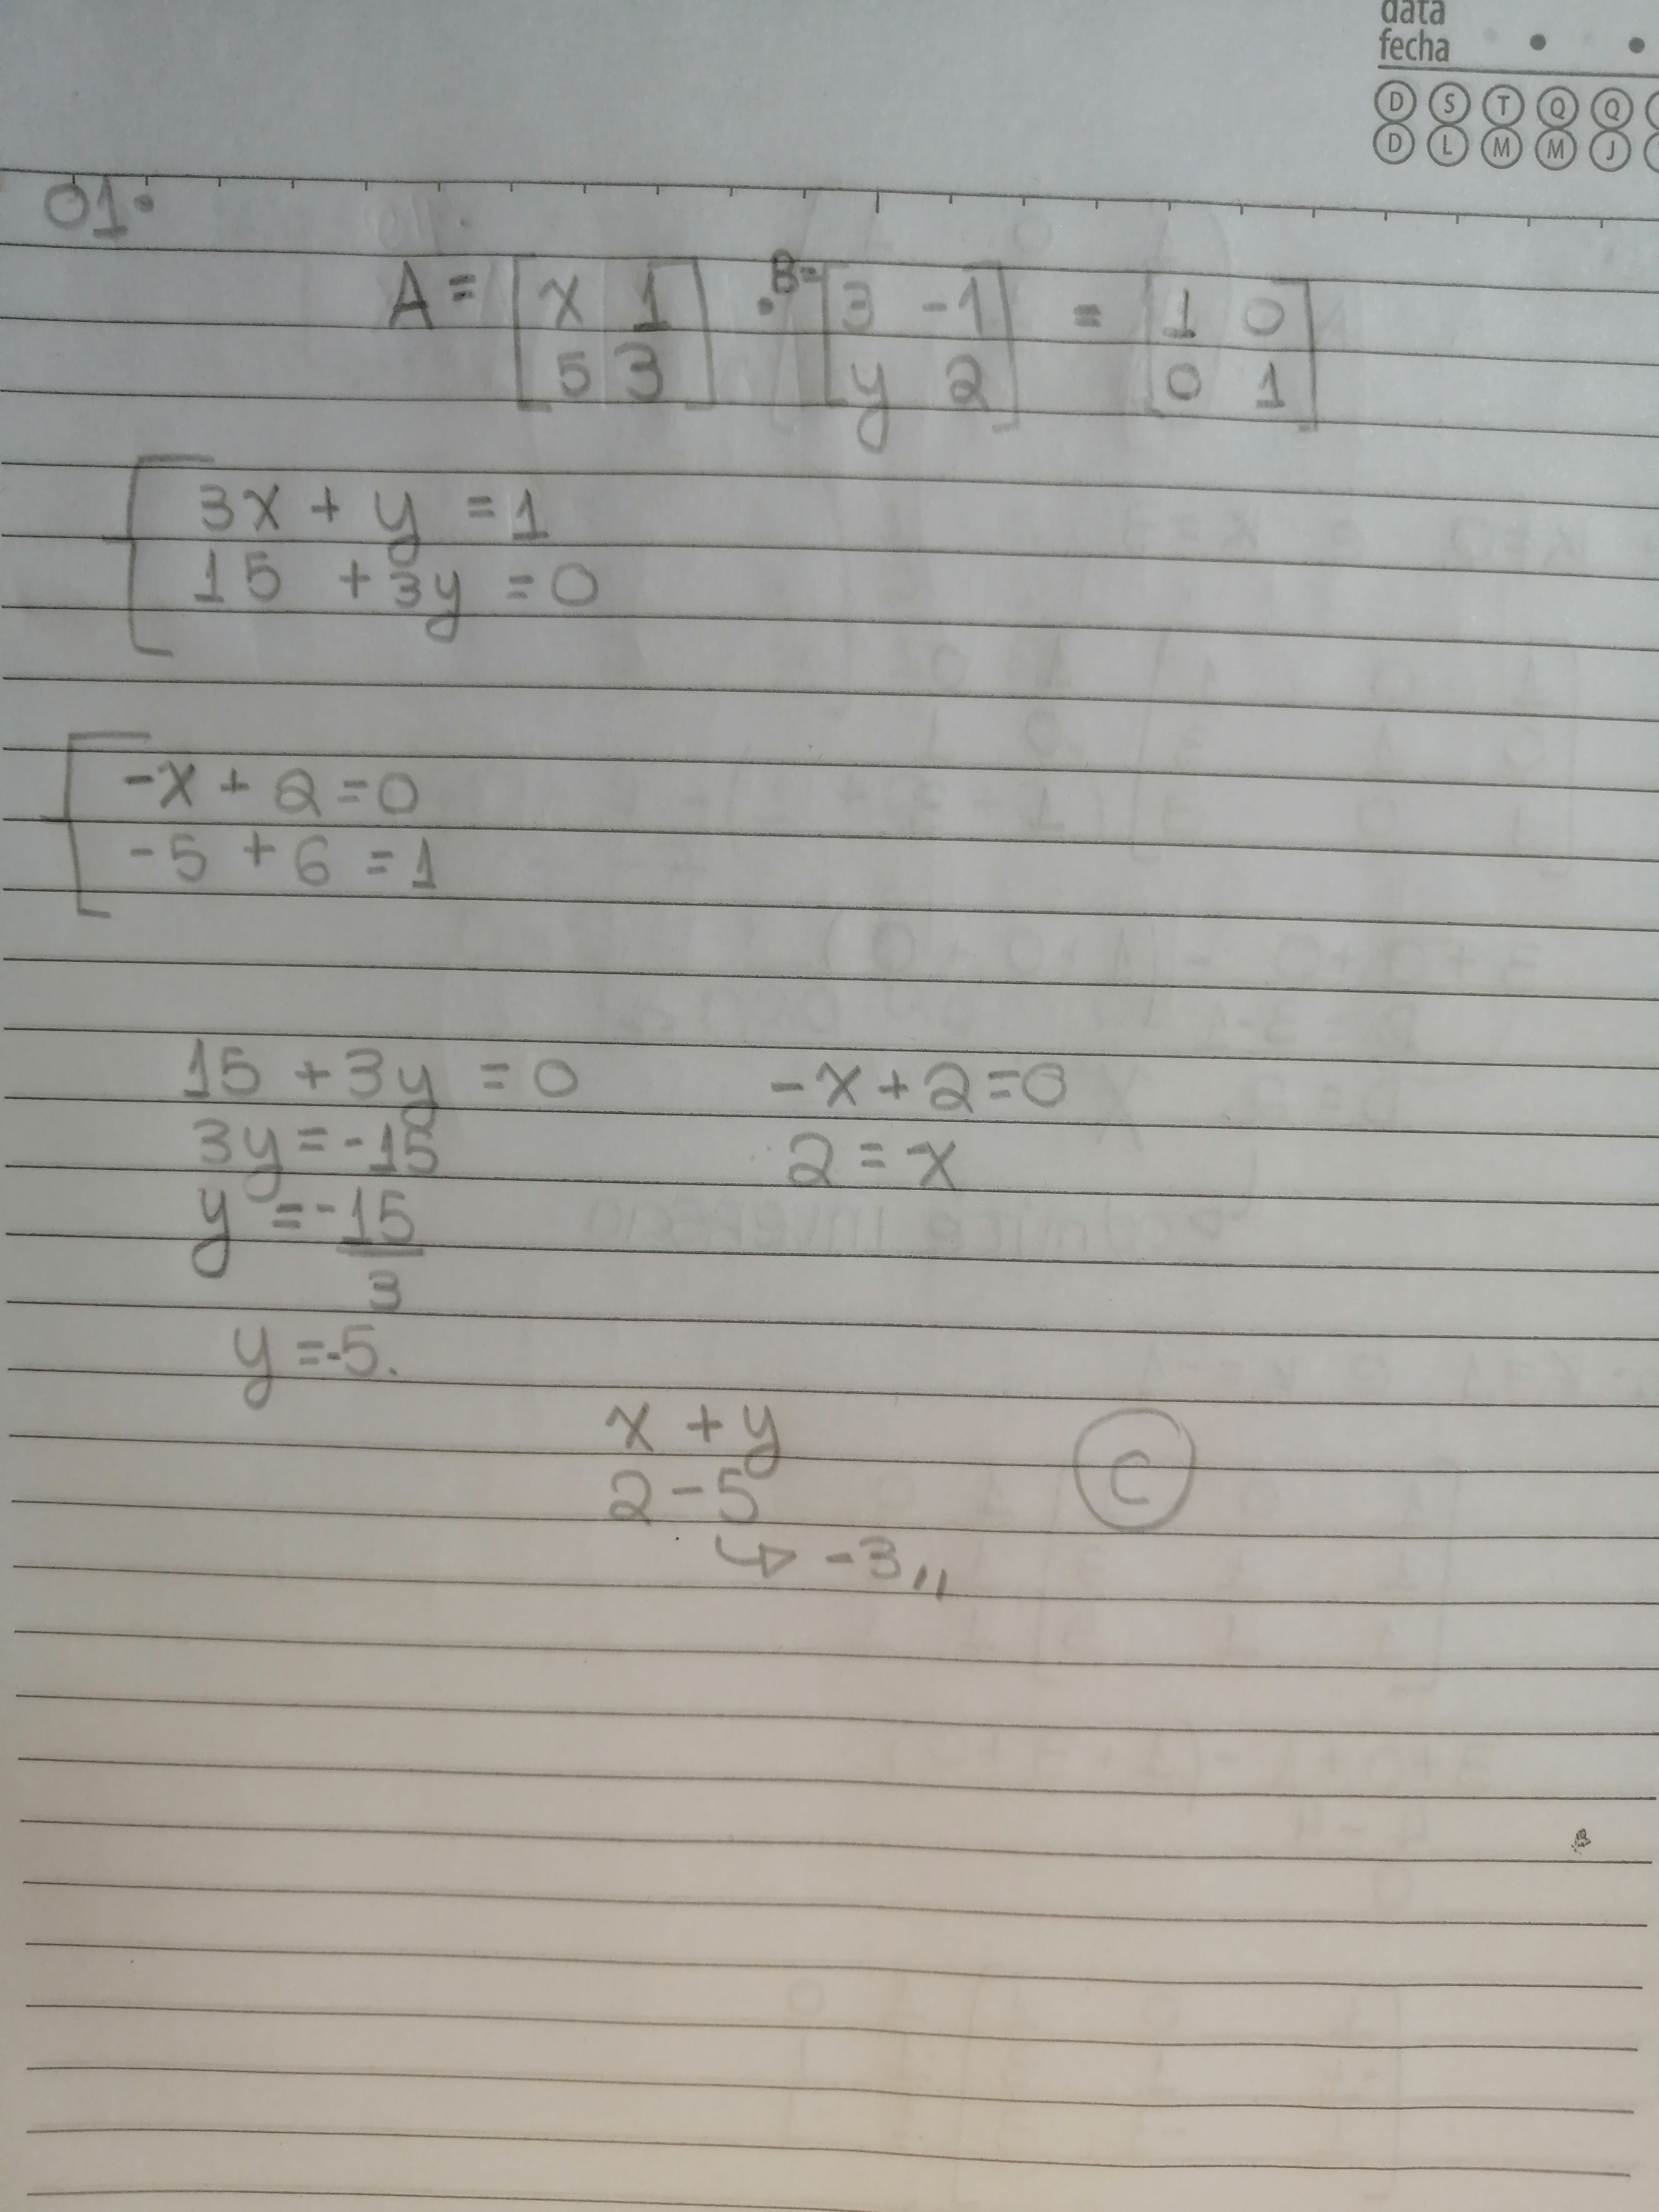 data
fecha
D S T Q Q
D L M M J
01.
A = [x 1 5 3] . B= [3 -1 y 2] = [1 0 0 1]
3x + y = 1
15 + 3y = 0
-x + 2 = 0
-5 + 6 = 1
15 + 3y = 0
3y = -15
y = -15
3
y = -5.
-x + 2 = 0
2 = x
x + y
2 - 5
↳ -3,,
C